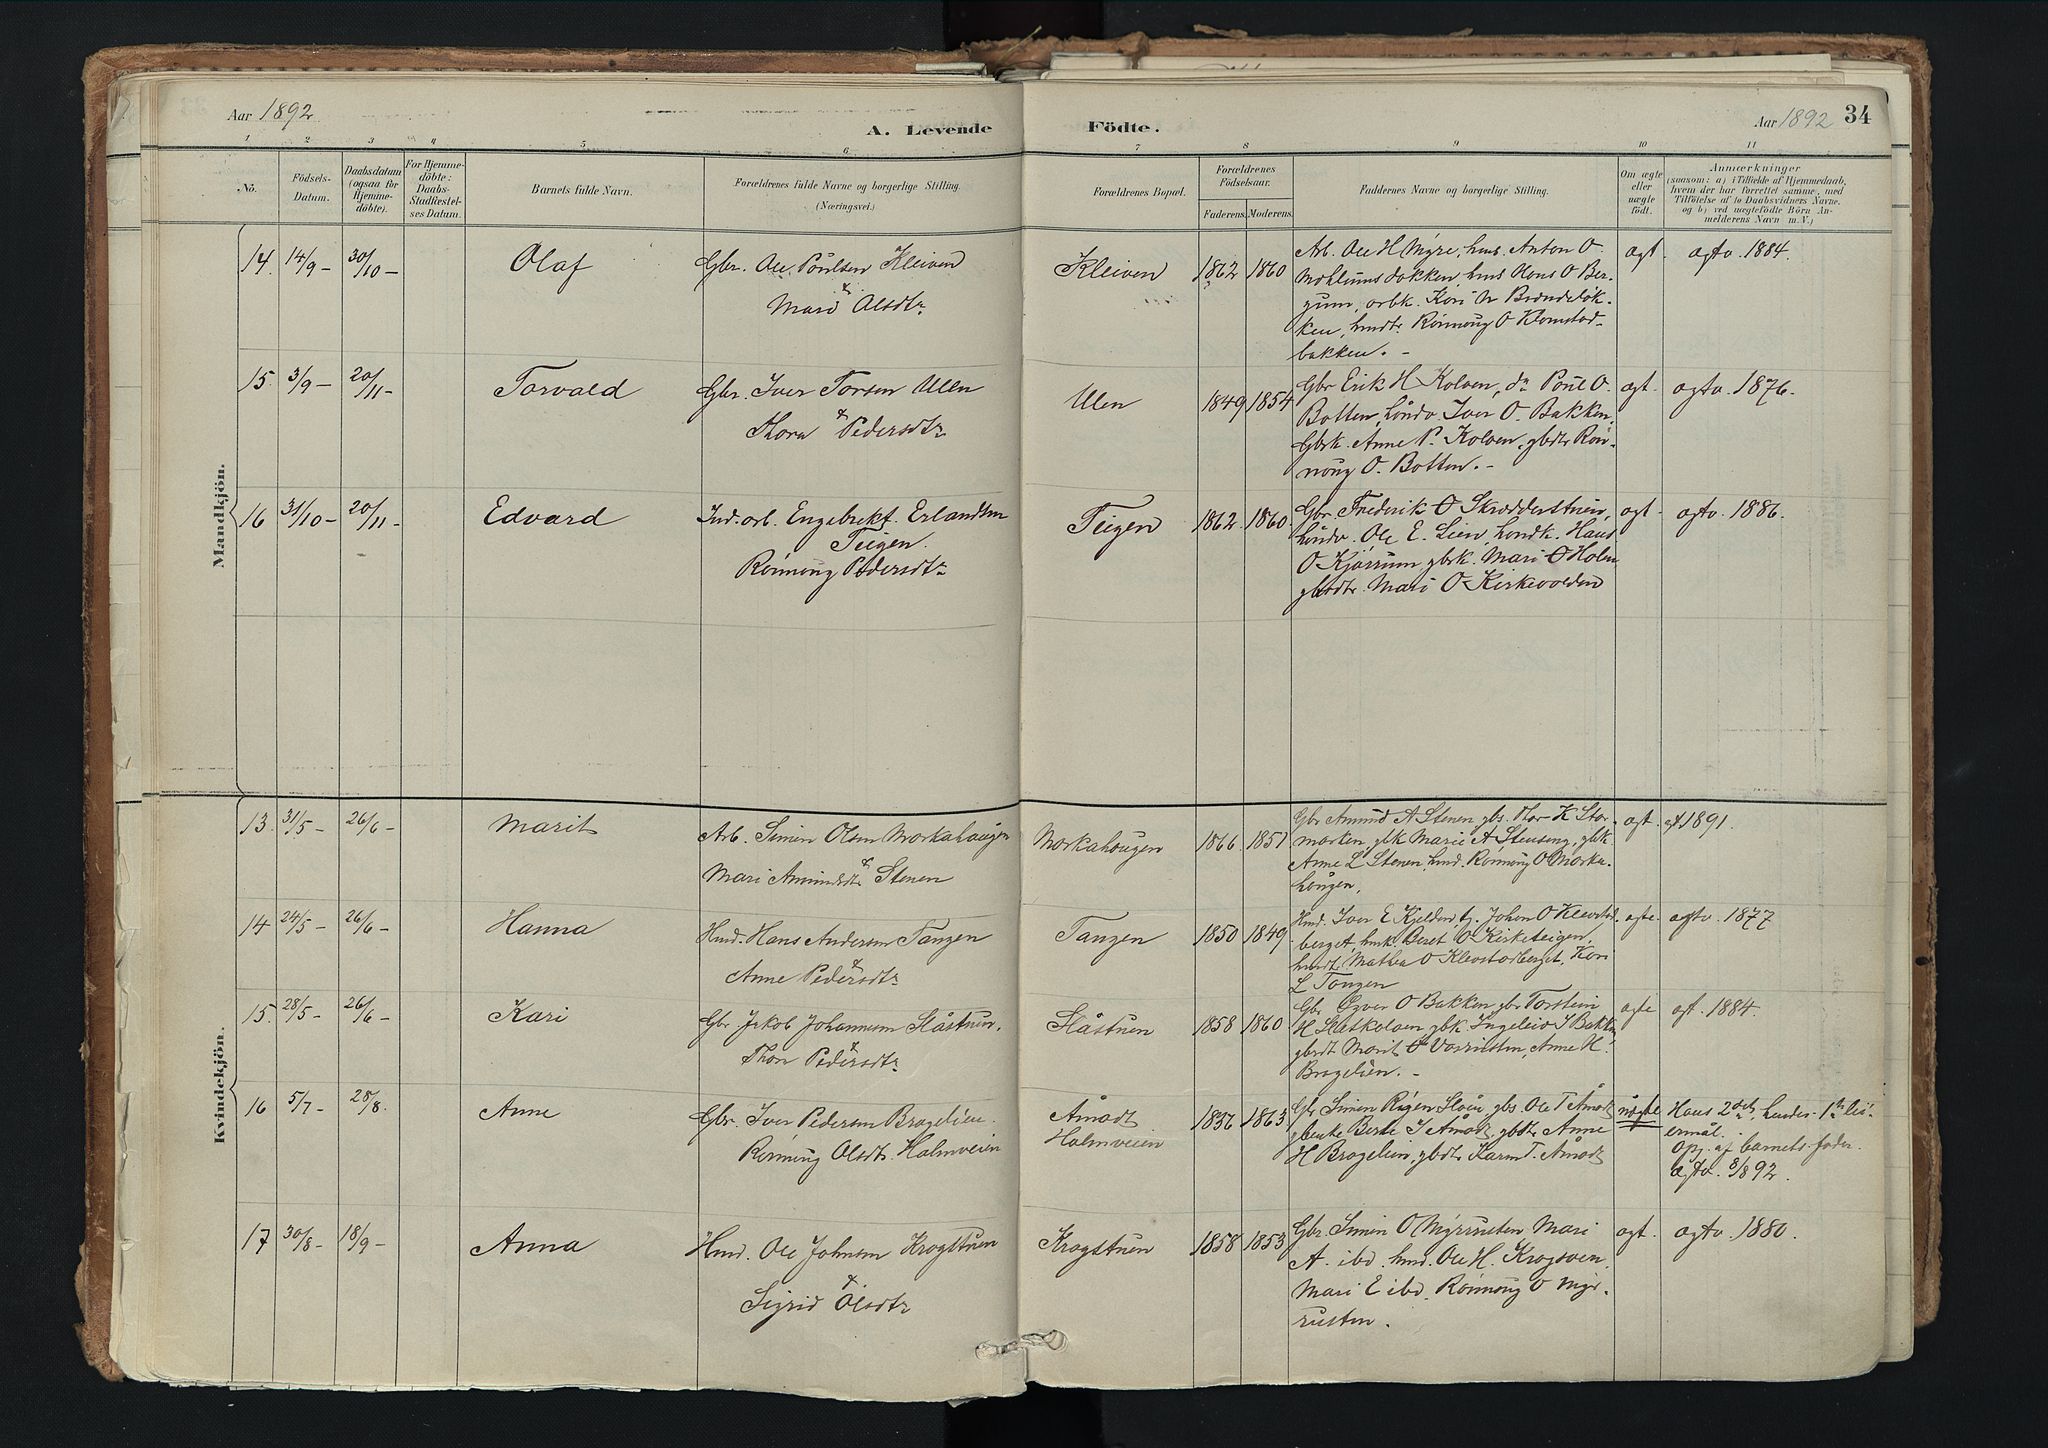 Aar 1892
A. Levende Födte.
Aar 1892
34
1 2 3 4 5 6 7 8 9 10 11
No.
Födsels-
Datum.
Daabsdatum
(ogsaa for
Hjemme-
döbte).
For Hjemme-
döbte:
Daabs-
Stadfæstel-
ses Datum.
Barnets fulde Navn.
Forældrenes fulde Navne og borgerlige Stilling.
(Næringsvei.)
Forældrenes Bopæl.
Forældrenes
Födselsaar.
Faderens. Moderens.
Faddernes Navne og borgerlige Stilling.
Om ægte
eller
uægte
födt.
Anmærkninger
(saasom: a) i Tilfælde af Hjemmedaab,
hvem der har forrettet samme, med
Tilföielse af to Daabsvidners Navne.
og b) ved uægtefödte Börn An-
melderens Navn m. V.)
Mandkjön.
14. 14/9 - 30/10 - Olaf
Gbr. Ole Poulsen Kleiven
&
Mari Olsdtr
Kleiven 1862 1860
Arb. Ole H Myre, hus. Anton O.
bakken, hus Hans O Ber-
gum, arbk. Kari
ken, husdtr Rönnoug O Klomstad-
bakken. -
ægt. ægtv. 1884.
15. 3/9 - 20/11 - Torvald
Gbr. Iver Torsen Ulen
&
Thora Pedersdtr
Ulen 1849 1854
Gbr Erik H Kolven, do Poul O.
Botten, Iver O. Bakken,
Gbrk. Anne P. Kolven, gbdtr Rön-
noug O. Botten. -
ægt. ægtv. 1876.
16 31/10 - 20/11 - Edvard
Ind. arb. Engebrekt Erlandsen
Teigen.
Rönnoug Pedersdtr
Teigen 1862 1860.
Gbr. Frederik O Skrædderstuen,
Ole E. Lien, Hans
O Kjörrum, gbrk. Mari O Holm
gbsdtr. Mari O Kirkevolden
ægt. ægtv. 1886.
Kvindekjön.
13. 31/5 - 26/6 - Marit
Arb. Simen Olsen Morkahougen
&
Mari Amundsdtr Stenen
Morkahougen 1866 1857
Gbr Amund A Stenen, gbs. Thor K Stor-
marken, gbk Marie A Stenseng, gbk.
Anne L Stenen, hmd. Rönnoug O Morka-
hougen.
ægt. 1891.
14 24/5 - 26/6 - Hanna
Hmd. Hans Andersen Tangen
&
Anne Pedersdtr
Tangen 1850 1849
Hmd. Iver E Kjelden, Johan O Klevstad-
berget, hmk. Beret O Kirketeigen,
hmdt. Mathea O Klevstadberget, Kari
L Tangen
ægte. ægtv. 1877
15. 28/5 - 26/6 - Kari
Gbr Jakob Johannesen Slåstuen.
&
Thora Pedersdtr
Slåstuen 1858 1860
Gbr Syver O Bakken, gbr Torstein
H Sletkolven, gbk Ingeleiv I Bakken
gbrdt Marit O Anne H.
Brageliën. -
ægte 1884.
16 5/7 - 28/8. Anne
Gbr. Iver Pedersen Brageliën
Rönnoug Olsdtr. Holmveien
Åmodt
Holmveien 1836 1863
Gbr Simen Sloën, gbs. Ole T Åmodt
Berte I Åmodt, gbdtr Anne
H Bragelien, gbdtr Karen T. Åmodt
uægte
Hans 2det hendes 1ste lei-
ermål.
Opg. af barnets fader.
ægtv. 8/892.
17 30/8 - 18/9 - Anna
Hmd. Ole Johnsen Krogstuen
&
Sigrid Olsdtr
Krogstuen 1858 1853
Gbr. Simen O Myrrusten Mari
A. ibd. hmd. Ole H. Krogsveen,
Mari E ibd, Rönnoug O Myr-
rusten.
ægt. ægtv. 1880.